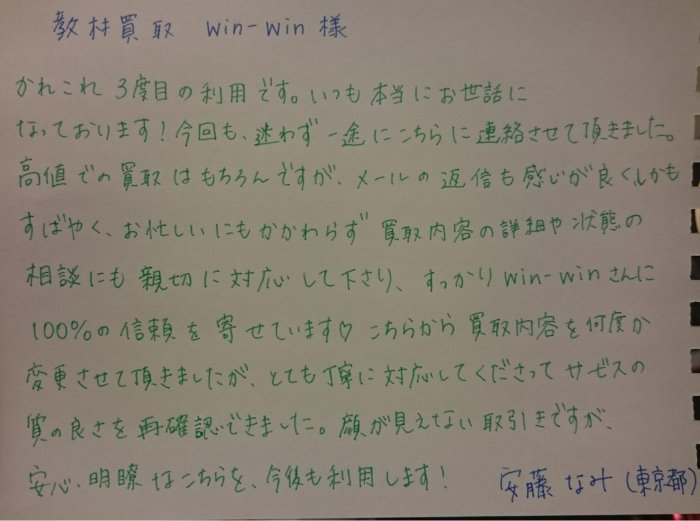 教材買取 win-win 様
かれこれ 3度目の利用です。いつも本当にお世話に
なっております！今回も、迷わず一途にこちらに連絡させて頂きました。
高値での買取はもちろんですが、メールの返信も感じが良くしかも
すばやく、お忙しいにもかかわらず 買取内容の詳細や状態の
相談にも親切に対応して下さり、すっかりwin-winさんに
100%の信頼を寄せています♡ こちらから買取内容を何度か
変更させて頂きましたが、とても丁寧に対応してくださってサービスの
質の良さを再確認できました。顔が見えない取引きですが、
安心、明瞭なこちらを、今後も利用します！ 安藤なみ（東京都）